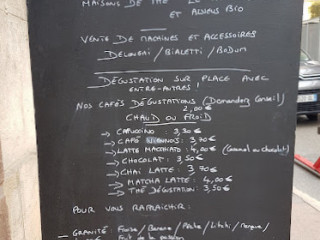 MAISONS DE THÉ
ET ALVEUS BIO
VENTE DE MACHINES ET ACCESSOIRES
DELONGHI / BIALETTI / BODUM
DÉGUSTATION SUR PLACE AVEC
ENTRE-AUTRES !
NOS CAFÉS DÉGUSTATIONS (Demandez Conseil)
2,00€
CHAUD OU FROID
→ CAPUCCINO : 3,30€
→ CAFÉ VIENNOIS : 3,90€
→ LATTE MACCHIATO : 4,00€ (Caramel ou chocolat)
→ CHOCOLAT : 3,50€
→ CHAI LATTE : 3,70€
→ MATCHA LATTE : 4,00€
→ THÉ DÉGUSTATION : 3,50€
POUR VOUS RAFRAICHIR :
→ GRANITÉ Fraise / Banane / Pêche / Litchi / Mangue /
Fruit de la passion